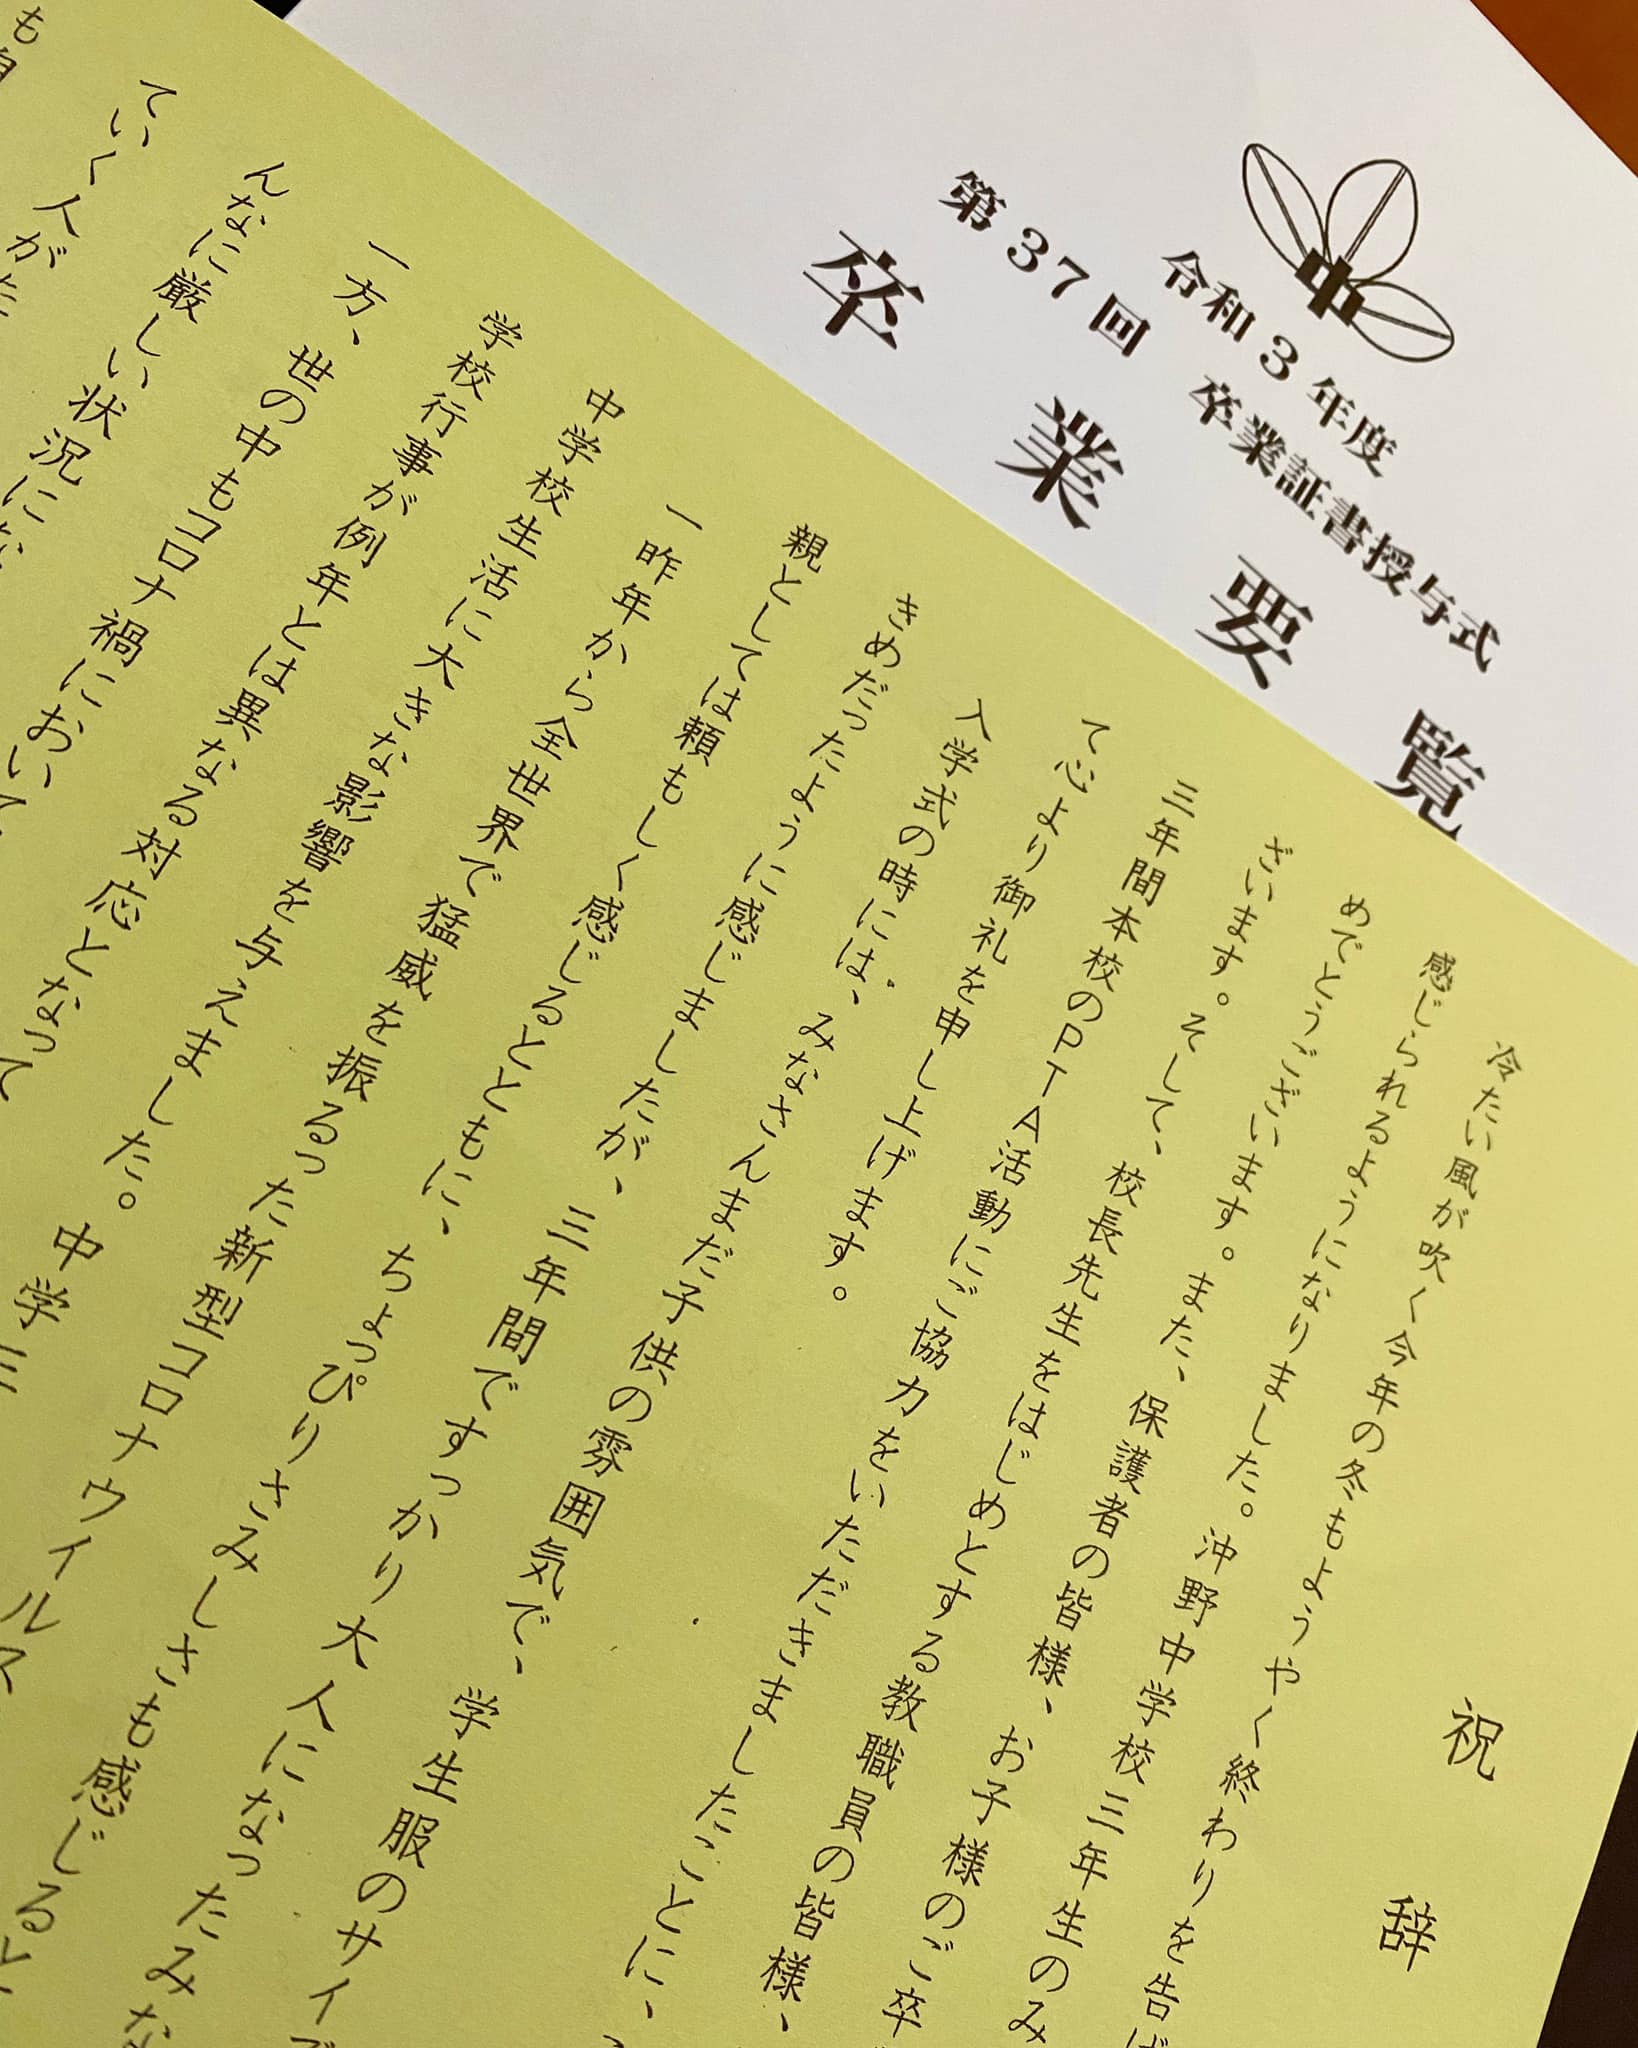 中
令和3年度
第37回 卒業証書授与式
卒業要覧
祝辞
冷たい風が吹く今年の冬もようやく終わりを告げ
感じられるようになりました。沖野中学校三年生のみ
めでとうございます。また、保護者の皆様、お子様のご卒
ざいます。そして、校長先生をはじめとする教職員の皆様、
三年間本校のPTA活動にご協力をいただきましたことに、
て心より御礼を申し上げます。
入学式の時には、みなさんまだ子供の雰囲気で、学生服のサイズ
きめだったように感じましたが、三年間ですっかり大人になったみな
親としては頼もしく感じるとともに、ちょっぴりさみしさも感じると
一昨年から全世界で猛威を振るった新型コロナウイルス
中学校生活に大きな影響を与えました。中学三
学校行事が例年とは異なる対応となって
一方、世の中もコロナ禍において、
んなに厳しい状況に
ていく人が
も